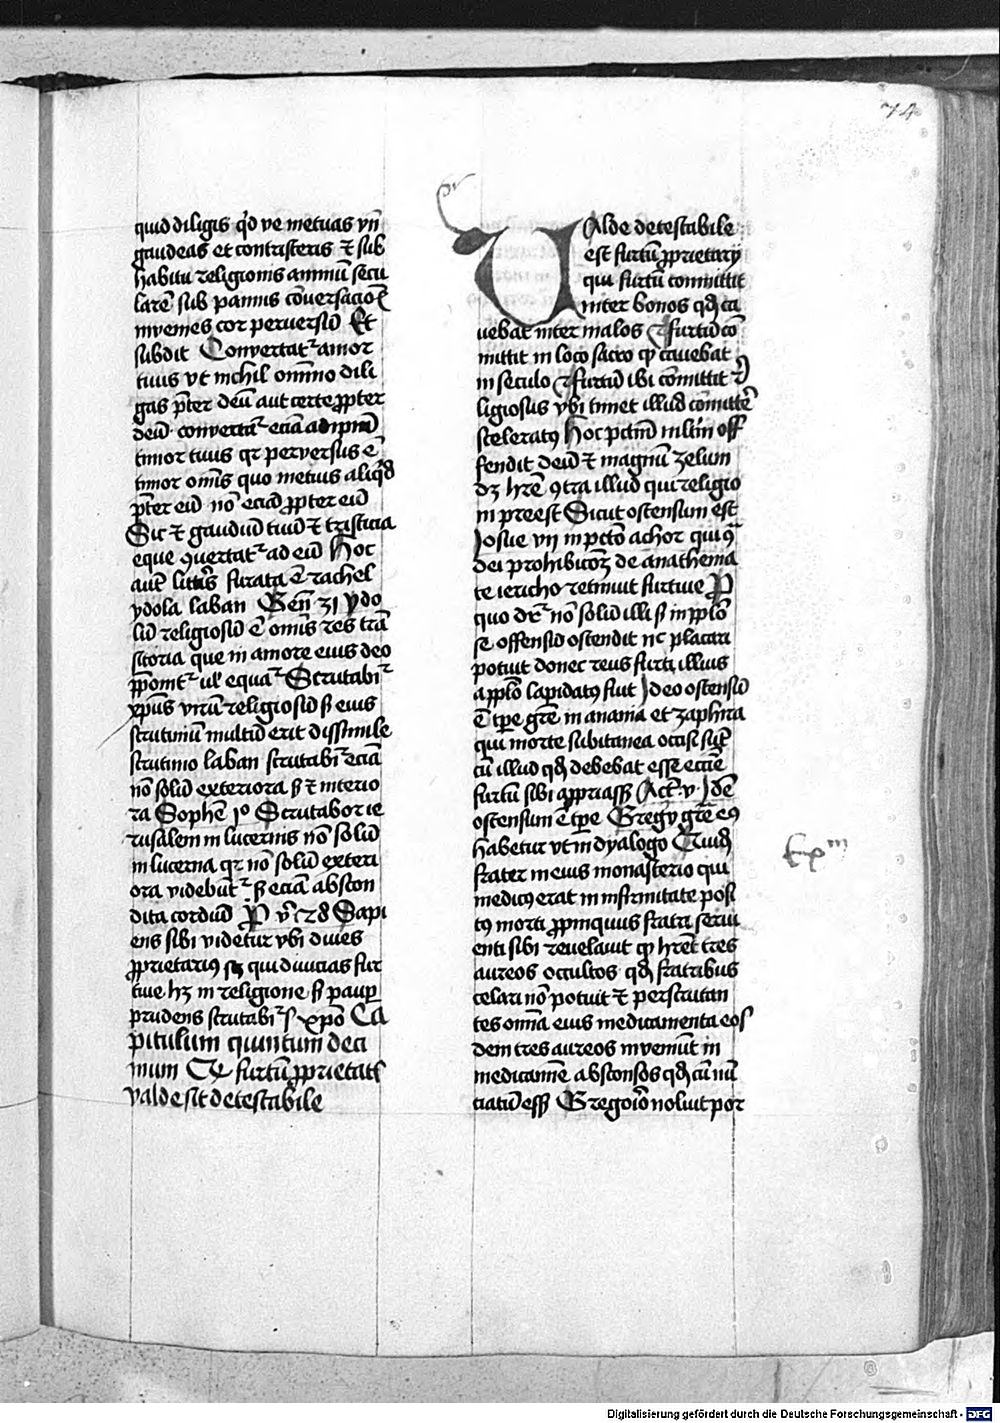 74
quid diligis qd ve metuas vn
gaudeas et contristeris ⁊ sub
habitu religionis animū secu
larē sub pannis cōversacioē
invenies cor perversū Et
subdit Convertatr amor
tuus vt nichil omnino dili
gas pter deū aut certe ꝓpter
deū convertatr eciā ad ipm
timor tuus qr perversus ē
timor omnis quo metuis aliqd
pter eū nō eciā ꝓpter eū
Sic ⁊ gaudiū tuū ⁊ tristicia
eque ꝯvertatr ad eū Hoc
aut furata ē rachel
ydola laban Gen 31 ydo
lū religiosū ē omnis res trā
sitoria que in amore eius deo
pponitr ul equatr Scrutabitr
xpus virū religiosū ß eius
scrutiniū multū erit dissimile
scrutinio laban scrutabitr eciā
nō solū exteriora ß ⁊ interio
ra Sophē 1o Scrutabor ie
rusalem in lucernis nō solū
in lucerna qr nō solū exteri
ora videbūtr ß eciā abscon
dita cordiū P 28 Sapi
ens sibi videtur vbi dives
ꝓprietarius qui divicias fur
tive hꝫ in religione ß paup
prudens scrutabitr xpō Ca
pitulum quintum deci
mum Qꝫ furtū ꝓprietatis
valde sit detestabile
Ualde detestabile
est furtū ꝓprietarij
qui furtū committit
inter bonos qd ca
uebat inter malos ⁊ furtū cō
mittit in loco sacro qꝫ cavebat
in seculo ⁊ furtū ibi cōmittit re
ligiosus vbi timet illud cōmittē
sceleratꝯ Hoc pctm off
fendit deū ⁊ magnū zelum
dꝫ hrē ꝯtra illud qui religio
ni preest Sicut ostensum est
Josue vij in pctō achor qui ꝯ
dei prohibicoꝫ de anathema
te iericho retinuit furtive P
quo dr nō solū illi ß in pplo
se offensū ostendit nc placari
potuit donec reus furti illius
a pplo lapidatꝯ fuit Ideo ostensū
ē tpe grē in anania et zaphira
qui morte subitanea occisi sūt
cū illud qd debebat esse ecciē
furtū sibi appriass Act v Idē
ostensum ē tpe Gregy grē eꝯ
habetur vt in dyalogo Quidā
Exm
frater in eius monasterio qui
medicꝯ erat in infirmitate posi
tꝯ morti ꝓpinquus fratri servi
enti sibi revelavit qꝫ hret tres
aureos occultos qd fratribus
celari nō potuit ⁊ perscrutan
tes omnia eius medicamenta eos
dem tres aureos invenīut in
medicamine absconsos qd cū nū
ciatū ess Gregorio noluit por
Digitalisierung gefördert durch die Deutsche Forschungsgemeinschaft - DFG